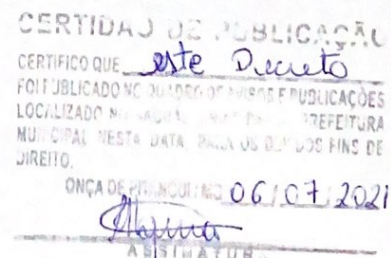 CERTIDÃO DE PUBLICAÇÃO
CERTIFICO QUE este Decreto
FOI PUBLICADO NO QUADRO DE AVISOS E PUBLICAÇÕES
LOCALIZADO PREFEITURA
MUNICIPAL NESTA DATA, PARA OS DEVIDOS FINS DE
DIREITO.
ONÇA DE PITANGUI/MG 06/07/2021
ASSINATURA